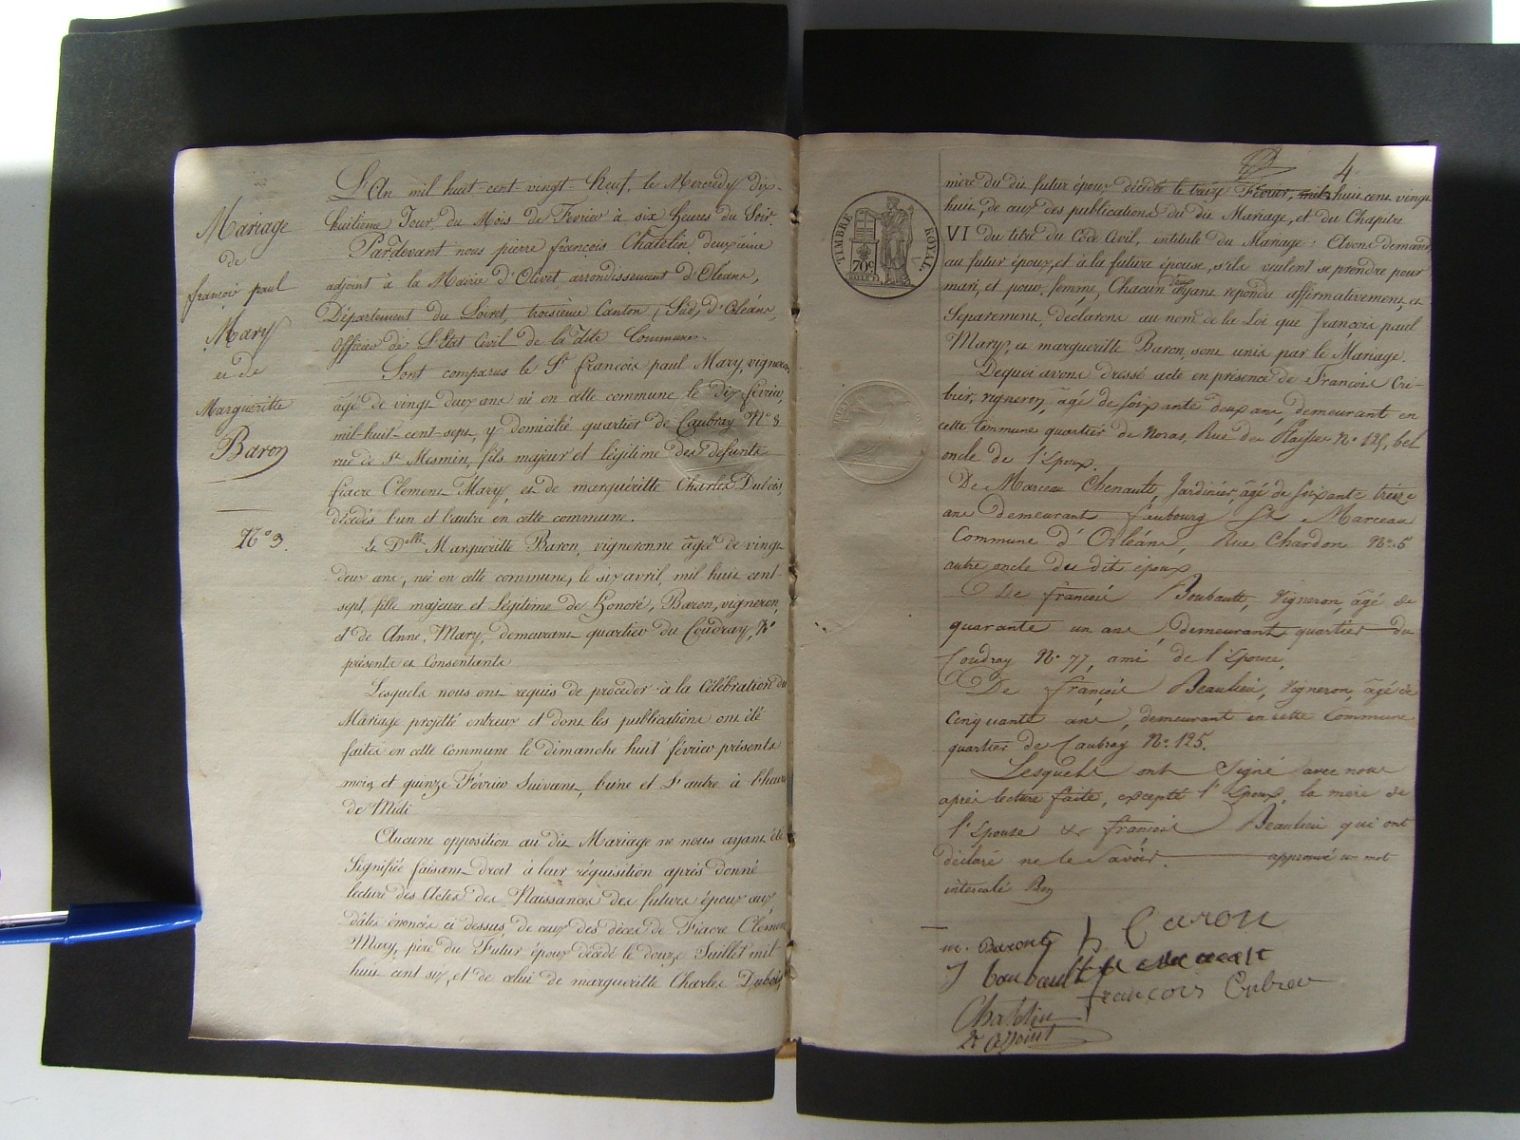 Mariage
de
françois paul
Mary
et de
Margueritte
Baron
N.º 3.
L'An mil huit cent vingt-Neuf, le Mercredy dix-
huitième Jour du Mois de Fevrier à six heures du Soir
Pardevant nous pierre françois Chatelin deuxième
adjoint à la Mairie d'Olivet arrondissement d'Orléans,
Département du Loiret, troisième Canton, Sud, d'Orléans,
Officier de L'Etat Civil de la dite Commune.
Sont comparus le Sr. françois paul Mary, vigneron,
âgé de vingt deux ans né en cette commune le dix fevrier,
mil-huit-cent-sept, y domicilié quartier de Caubray Nº 8
rue de St Mesmin, fils majeur et légitime des defunts
fiacre Clement Mary, et de marguéritte Charles Dubois,
décédés l'un et l'autre en cette commune.
Et Delle Margueritte Baron, vigneronne âgée de vingt
deux ans, née en cette commune, le six avril, mil huit cent
sept, fille majeure et légitime de Honoré, Baron, vigneron,
et de Anne, Mary, demeurant quartier du Coudray, Nº
présents et Consentants
Lesquels nous ont requis de procéder à la Célébration du
Mariage projetté entreux et dont les publications ont été
faites en cette Commune le dimanche huit fevrier présents
mois, et quinze Février Suivant, l'une et l'autre à l'heure
de Midi
Aucune opposition au dit Mariage ne nous ayant été
Signifiée faisant droit à leur réquisition après donné
lecture des Actes de Naissances des futurs époux aux
dates énoncés ci dessus, de ceux des décès de Fiacre Clément
Mary, père du Futur époux décédé le douze Juillet mil
huit cent six, et de celui de margueritte Charles Dubois,
4
TIMBRE ROYAL
70c
mère du dit futur époux décédé le treize Fevrier, mil huit cent vingt
huit, de ceux des publications du dit Mariage, et du Chapitre
VI du titre du Code Civil, intitulé du Mariage: Avons demandé
au futur époux, et à la future épouse, s'ils veulent se prendre pour
mari, et pour femme, Chacun d'eux ayant repondu affirmativement et
Separement, declarons au nom de la Loi que françois paul
Mary, et margueritte Baron, sont unis par le Mariage.
Dequoi avons dressé acte en présence de François Cri-
bier, vigneron, agé de soixante deux ans, demeurant en
cette Commune quartier de Noras, Rue du Nº 126, bel
oncle de l'Epoux.
De Marceau Chenault, Jardinier, âgé de soixante treize
ans demeurant faubourg St Marceau
Commune d'Orléans, Rue Chardon Nº 5
autre oncle du dit epoux,
De françois Boubault, Vigneron, âgé de
quarante un ans, demeurant quartier du
Coudray Nº 77, ami de l'Epouse,
De françois Beaulieu, Vigneron, âgé de
Cinquante ans, demeurant en cette Commune
quartier de Caubray Nº 125.
Lesquels ont Signé avec nous
après lecture faite, excepté l'Epoux, la mère de
l'Epouse & françois Beaulieu qui ont
déclaré ne le Savoir. approuvé un mot
intercalé
m. Baront h Caron
J boubault
françois Cribier
Chatelin
2e adjoint